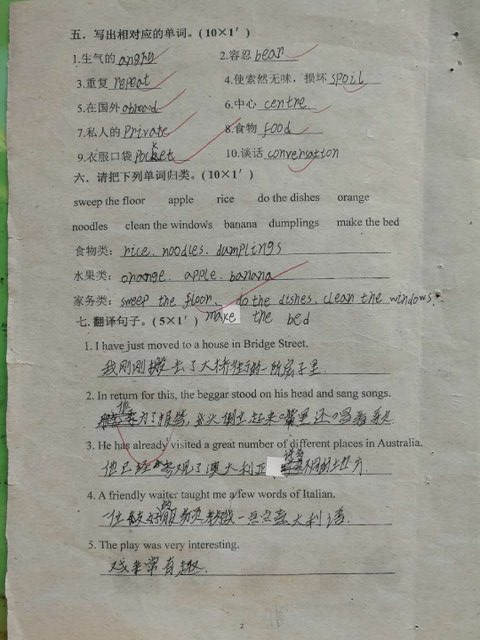 五、写出相对应的单词。(10×1′)
1.生气的 angry 2.容忍 bear
3.重复 repeat 4.使索然无味，损坏 spoil
5.在国外 abroad 6.中心 centre
7.私人的 Private 8.食物 food
9.衣服口袋 Pocket 10.谈话 conversation
六、请把下列单词归类。(10×1′)
sweep the floor apple rice do the dishes orange
noodles clean the windows banana dumplings make the bed
食物类: rice、noodles、dumplings
水果类: orange、apple、banana
家务类: sweep the floor、do the dishes、clean the windows、
make the bed
七、翻译句子。(5×1′)
1. I have just moved to a house in Bridge Street.
我刚刚搬去了大桥街的一所房子里.
2. In return for this, the beggar stood on his head and sang songs.
为了报答,
3. He has already visited a great number of different places in Australia.
他已经参观了澳大利亚 不同的地方.
4. A friendly waiter taught me a few words of Italian.
一位友好的服务员教我一点点意大利语.
5. The play was very interesting.
戏非常有趣.
2